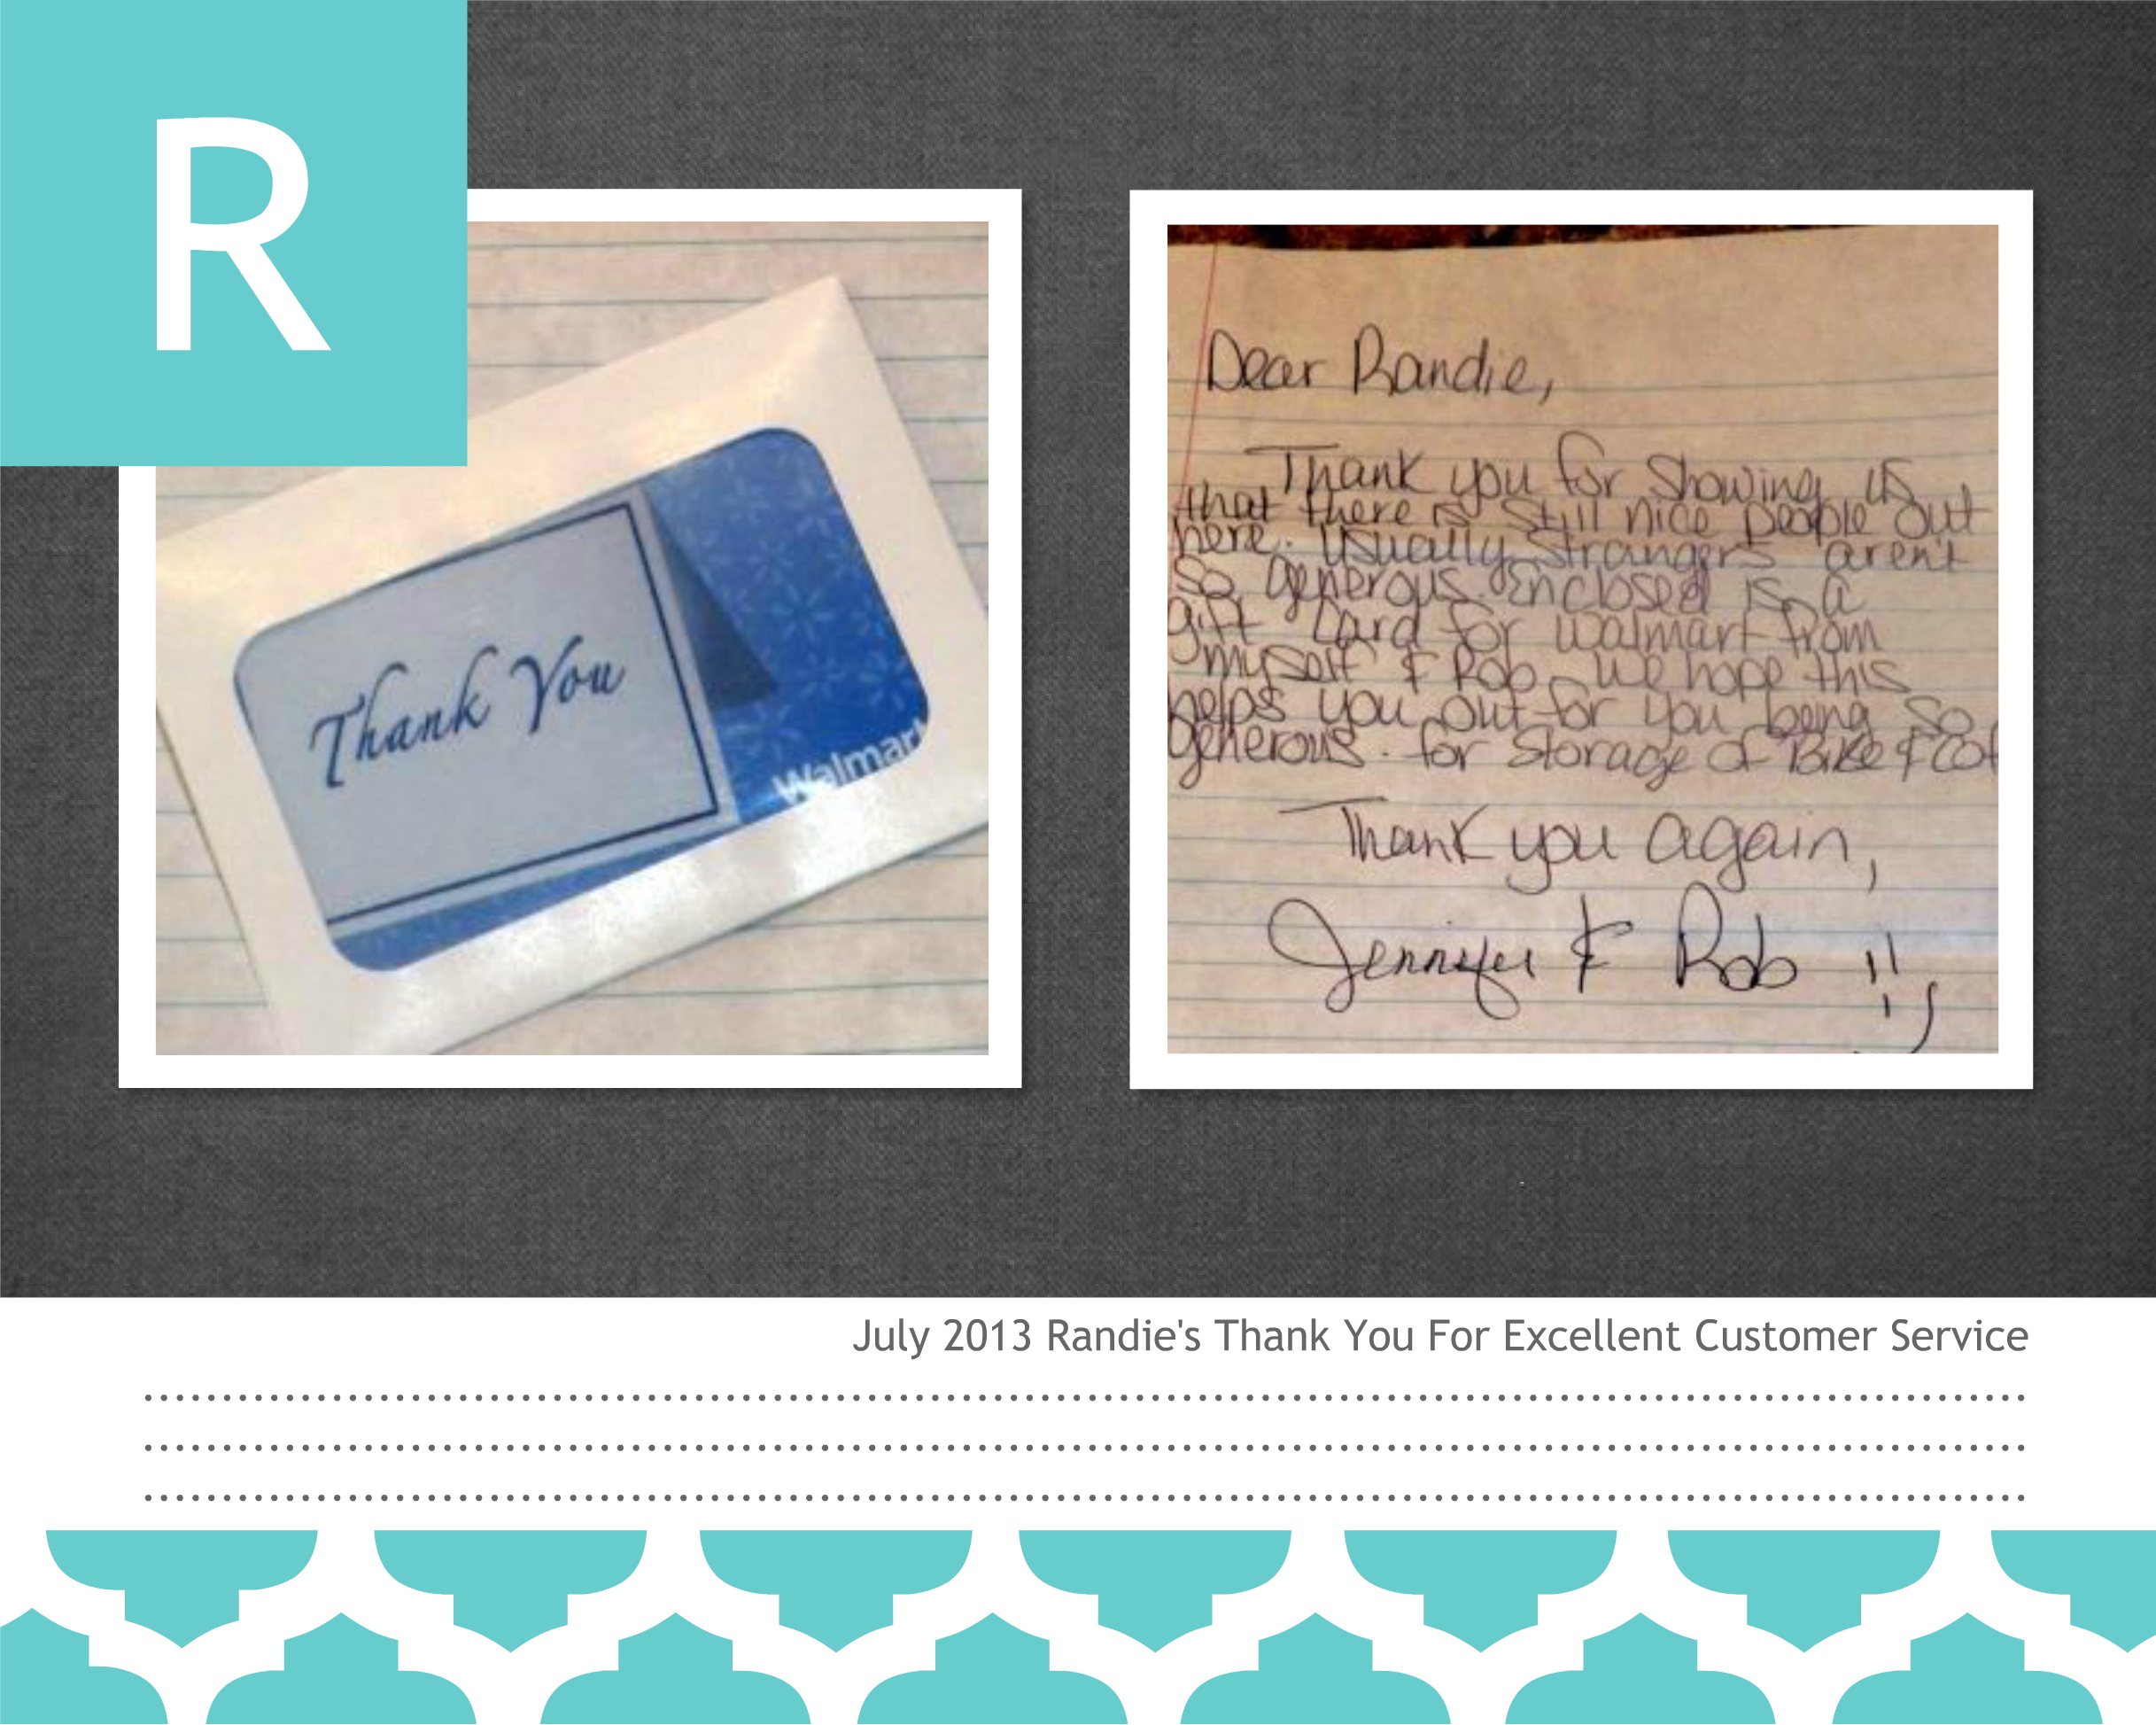 R
Thank You
Walmart
Dear Randie,
Thank you for showing us
that there is still nice people out
here. Usually strangers aren't
so generous. Enclosed is a
gift card for Walmart from
myself & Rob. We hope this
helps you out for you being so
generous. for storage of Bike & Cot
Thank you again,
Jennifer & Rob !! :)
July 2013 Randie's Thank You For Excellent Customer Service